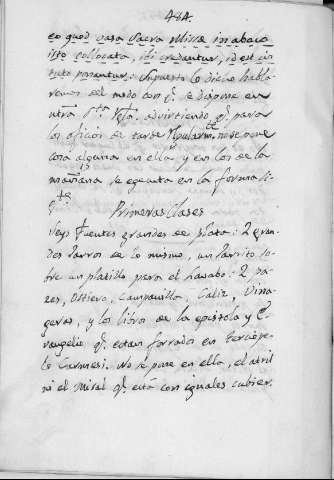 484.
eo quod vasa sacra Missæ in abaco
isto collocata, ibi credantur, id est in
tuto ponantur: supuesto lo dicho habla
remos del modo con q.e se dispone en
ntra S.ta Ygla. advirtiendo q.e para
los oficios de tarde Regularm.te no se pone
cosa alguna en ella y en los de la
mañana se egecuta en la forma si-
g.te
Primeras Clases
Seys fuentes grandes de plata: 2 gran-
des Jarros de lo mismo, un Jarrito so-
bre un platillo para el navabo: 2 pa-
zes, Ostiero, Campanilla, Caliz, Vina-
geras, y los libros de la epistola y E-
vangelio q.e estan forrados en terciope-
lo carmesi. No se pone en ella, el atril
ni el Misal q.e está con iguales cubier.